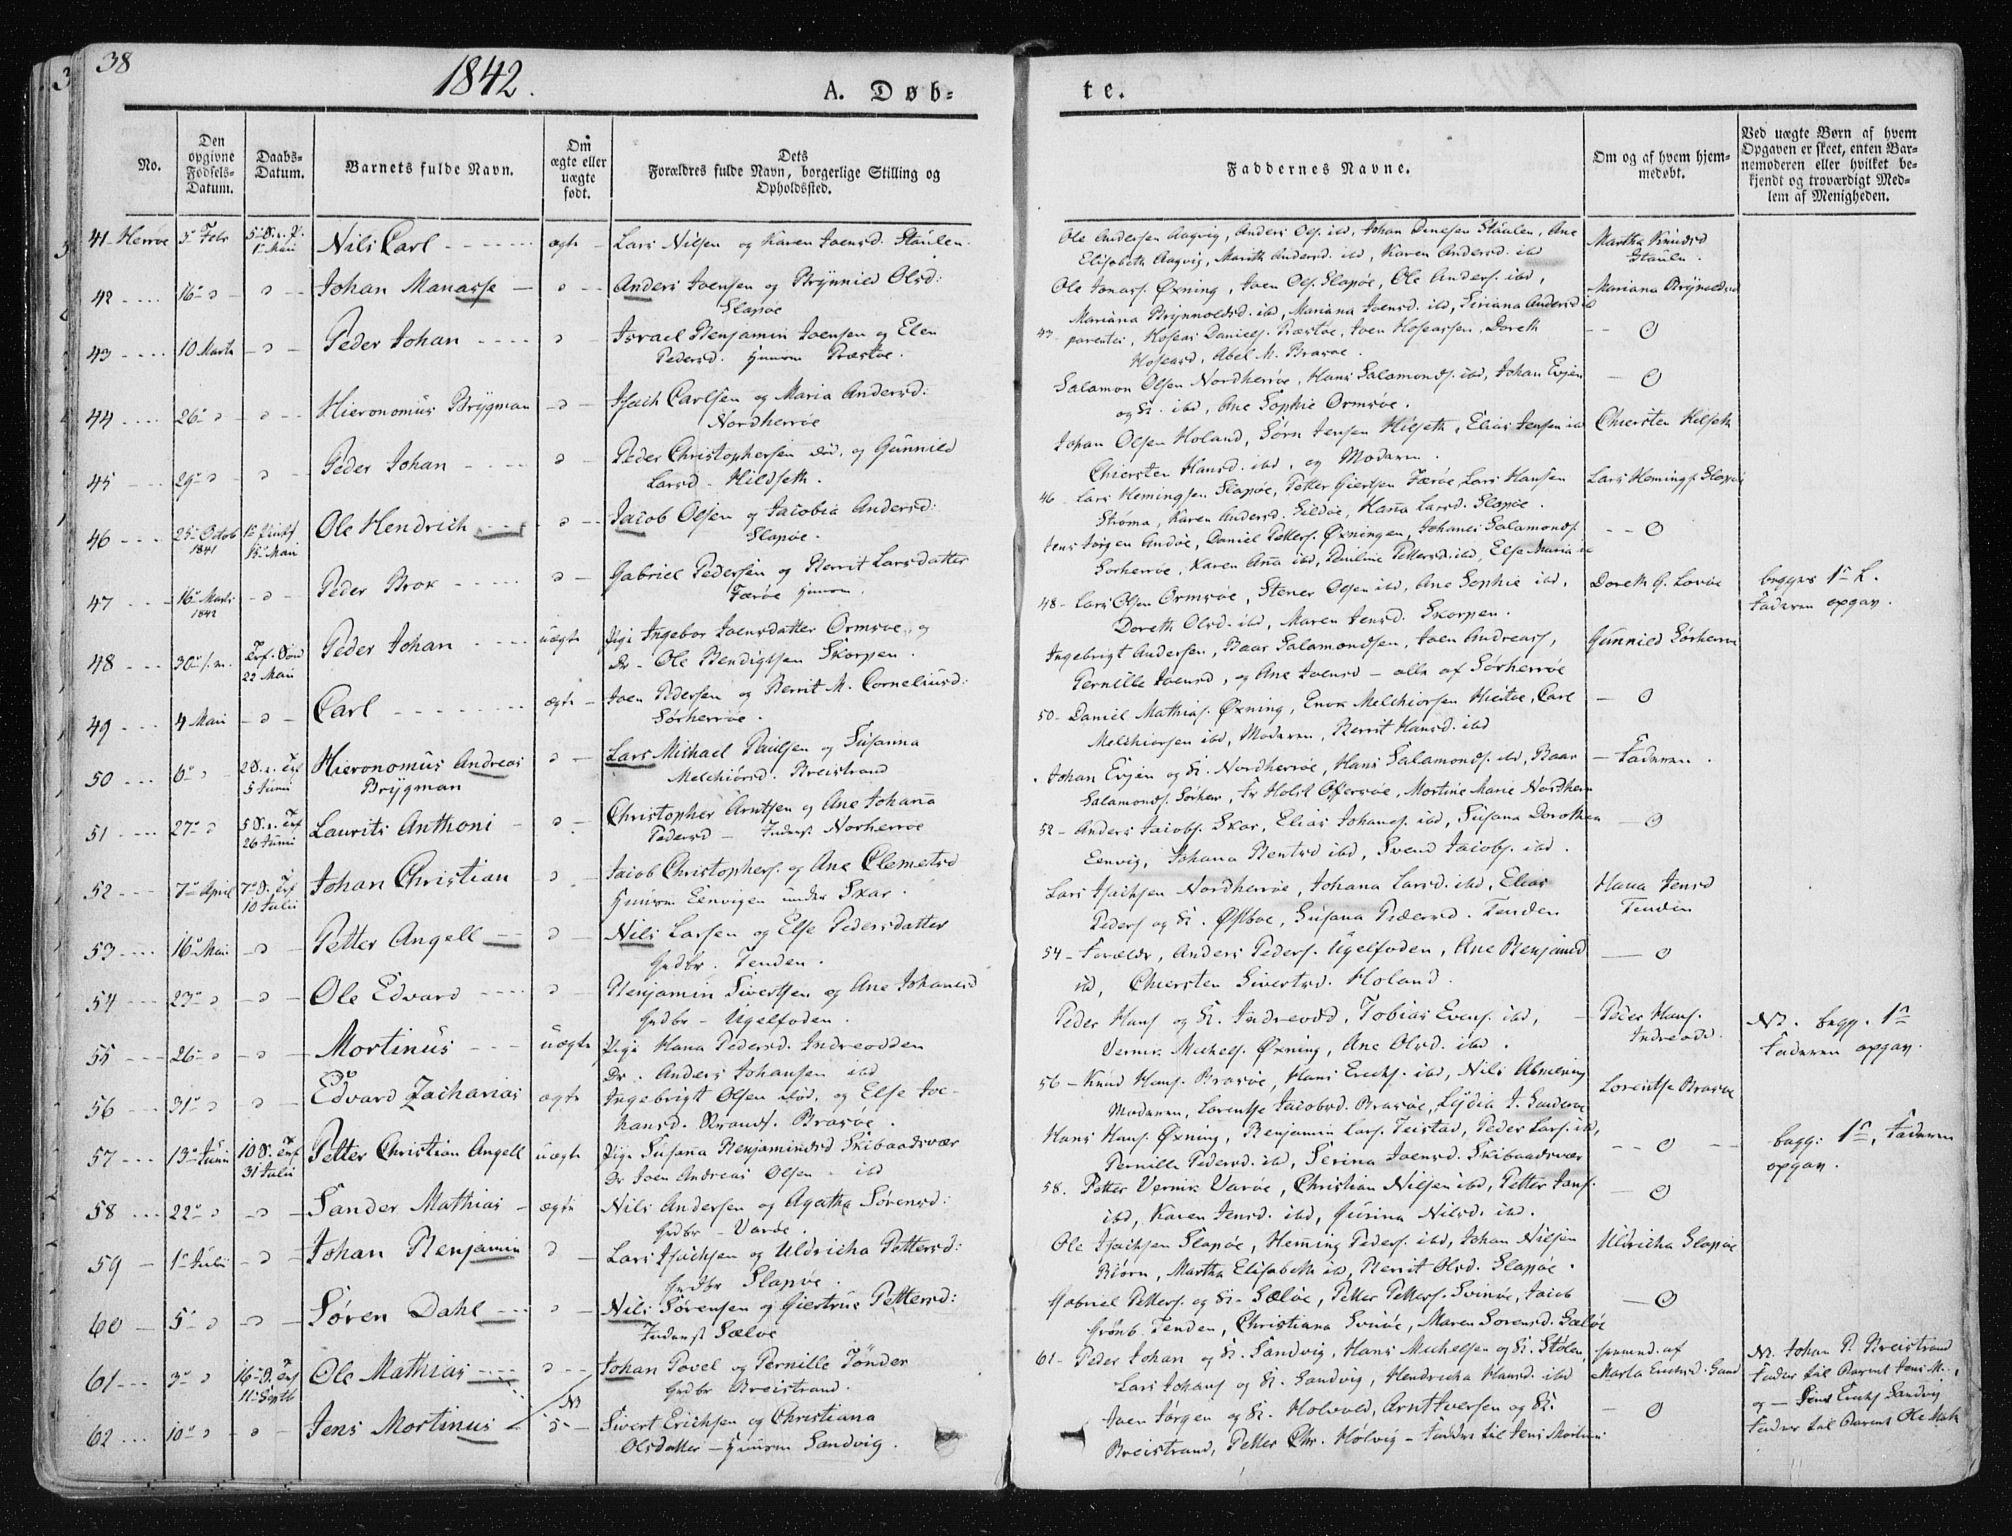 38
1842.
A. Døb-
te.
No.
Den opgivne Fødsels-Datum.
Daabs-Datum.
Barnets fulde Navn.
Om ægte eller uægte født.
Dets Forældres fulde Navn, borgerlige Stilling og Opholdssted.
Faddernes Navne.
Om og af hvem hjem-
medøbt.
Ved uægte Børn af hvem
Opgaven er skeet, enten Bar-
nemoderen eller hvilket be-
kjendt og troværdigt Med-
lem af Menigheden.
41 Herrøe 3 Febr 1 Mai Nils Carl ægte Lars Nilsen og Karen Joensd. Staulen
Ole Andersen Aagvig, Anders Ols. ibd, Johan Staulen, Ane
Elisabeth Aagvig, Marith Andersd. ibd, Karen Andersd. ibd
Martha Knudsd
Staulen.
42 16 Johan Manasse Anders Joensen og Brynnild Olsd:
Slapøe
Ole Jonass. Øxning, Joen Ols. Slapøe, Ole Anders. ibd,
Mariana Brynnoldsd. ibd, Mariana Joensd. ibd, Siriana Andersd ibd
43 10 Marts Peder Johan Israel Benjamin Joensen og Elen
Pedersd. Huusm Præstøe.
43 - parentes, Hoseas Daniels. Præstøe, Joen Hoseassen, Doreth
Hoseasd, Abel M. Brasøe.
44 26 Hieronomüs Brygman Isach Carlsen og Maria Andersd:
Nordherrøe
Salamon Olsen Nordherrøe, Hans Salamonds. ibd, Johan Evjen
og K. ibd, Ane Sophie Ormsøe.
45 29 Peder Johan Peder Christophersen død, og Gunnild
Larsd. Hildseth.
Johan Olsen Holand, Sørn Jensen Hilseth, Elias Jensen ibd
Chiersten Hansd. ibd, og Moderen.
Chiersten Hilseth
46 25 Octob 1841 Ole Hendrich Jacob Olsen og Jacobia Andersd:
Slapøe.
46 - Lars Hemingsen Slapøe, Petter Giertsen Færøe, Lars Hansen
Strøma, Karen Andersd. Hanna Larsd. Slapøe.
Lars Hemings. Slapøe
47 16 Marts 1842 Peder Brox Gabriel Pedersen og Berrit Larsdatter
Færøe Huusm.
Jens Jørgen Andøe, Daniel Petters. Øxningen, Johanes Salamonds.
Sørherrøe, Karen Anna ibd, Pauline Pettersd. ibd, Else Maria ibd
48 30 Trf. Sønd 22 Mai Peder Johan uægte Pige Ingebor Joensdatter Ormsøe, og
Dr - Ole Bendigtsen Skorpen.
48 - Lars Olsen Ormsøe, Stener Olsen ibd, Ane Sophie ibd,
Doreth Olsd. ibd, Maren Jensd. Skorpen.
Doreth G. Lovøe
begges 1ste L.
Faderen opgav.
49 4 Mai Carl ægte Joen Pedersen og Berrit M. Corneliusd:
Sørherrøe.
Ingebrigt Andersen, Baar Salamondsen, Joen Andreass,
Pernille Joensd, og Ane Joensd - alle af Sørherrøe
Gunnild Sørherrøe
50 6 5 Junii Hieronomüs Andreas
Brygman Lars Michael Paulsen og Susanna
Melchiorsd. Breistrand
50 - Daniel Mathias. Øxning, Enok Melchiorsen Carl
Melchiorsen ibd, Moderen, Berrit Hansd. ibd
51 27 26 Junii Laurits Anthoni Christopher Arntsen og Ane Johanna
Pedersd - Inderst Norherrøe
Johan Evjen og K. Nordherrøe, Hans Salamonds. ibd, Baar
Salamonds. Sørherr, Fr Holst Offersøe, Mortine Marie Nordherr
- Faderen.
52 7 April 10 Julii Johan Christian Jacob Christophers. og Ane Clemetsd
Huusm Eenvigen under Skar
52 - Anders Jacobs. Skar, Elias Johans. ibd, Susana Dorothea
Eenvig, Johana Bentsd ibd, Svend Jacobs. ibd.
53 16 Mai Petter Angell Nils Larsen og Else Pedersdatter
Gudbr. Tenden.
Lars Isachsen Nordherrøe, Johana Larsd. ibd, Elias
Peders og K. Østboe, Susana Pedersd. Tenden
Hana Jensd
Tenden
54 23 Ole Edvard Benjamin Sivertsen og Ane Johansd
Gudbr - Ugelfoden.
54 - Forældr, Anders Peders. Ugelfoden, Ane Benjamsd
ibd, Chiersten Sivertsd. Holand.
55 26 Mortinus uægte Pige Hana Pedersd. Indreodden
Dr. Anders Johansen ibd
Peder Hans og K. Indreodd, Tobias Evens. ibd,
Vernik Michels. Øxning, Ane Olsd. ibd.
Peder Hans.
Indreodd.
NB. begg. 1ste
Faderen opgav.
56 31 Edvard Zacharias ægte Ingebrigt Olsen død, og Else Jo-
hansd. Strands. Brasøe.
56 - Knud Hans. Brasøe, Hans Erichs. ibd, Nils Almening
Moderen, Lorentse Jacobsd. Brasøe, Lydia J. Sandøe
Lorentse Brasøe
57 13 Junii 31 Julii Petter Christian Angell uægte Pige Susana Benjaminsd Skibaadsvær
Dr Joen Andreas Olsen ibd
Hans Hans. Øxning, Benjamin Lars. Teistad, Peder Lars. ibd,
Pernille Pedersd. ibd, Serina Joensd. Skibaadsvær
begg: 1ste, Faderen
opgav.
58 22 Sander Mathias ægte Nils Andersen og Agatha Sørensd:
Gudbr - Varøe.
58. Petter Vernik Varøe, Christian Nilsen ibd, Petter Jans.
ibd, Karen Jensd. ibd, Gurina Nilsd. ibd.
59 1 Julii Johan Benjamin Lars Isachsen og Uldricha Pettersd:
Gudbr Slapøe.
Ole Isachsen Slapøe, Heming Peders. ibd, Johan Nilsen
Biørn, Martha Elisabeth ibd, Berrit Olsd. Slapøe.
Uldricha Slapøe
60 5 Søren Dahl Nils Sørensen og Giertrue Pettersd:
Inderst Sæløe
Gabriel Petters. og K. Sæløe, Petter Petters. Svinøe, Jacob
Grønb. Tenden, Christiana Svinøe, Maren Sorensd. Sæløe
61 3 11 Septb Ole Mathias Johan Povel og Pernille Tønder
Gudbr Breistrand.
61 - Peder Johan og K. Sandvig, Hans Michelsen og K. Stølen
Lars Johans og K. Sandvig, Hendricha Hansd. ibd
Marta Erichsd. Sand
NB. Johan P. Breistrand
Fader til Barnet Jens M.,
og - Sivert Erichs Sandvig
Fader til Barnet Ole Math
62 10 Jens Mortinus NB Sivert Erichsen og Christiana
Olsdatter - Huusm Sandvig.
Joen Jørgen og K. Holvold, Arnt Iversen og K.
Breistrand, Petter Chr. Holvig - Fadder til Jens Mortinus